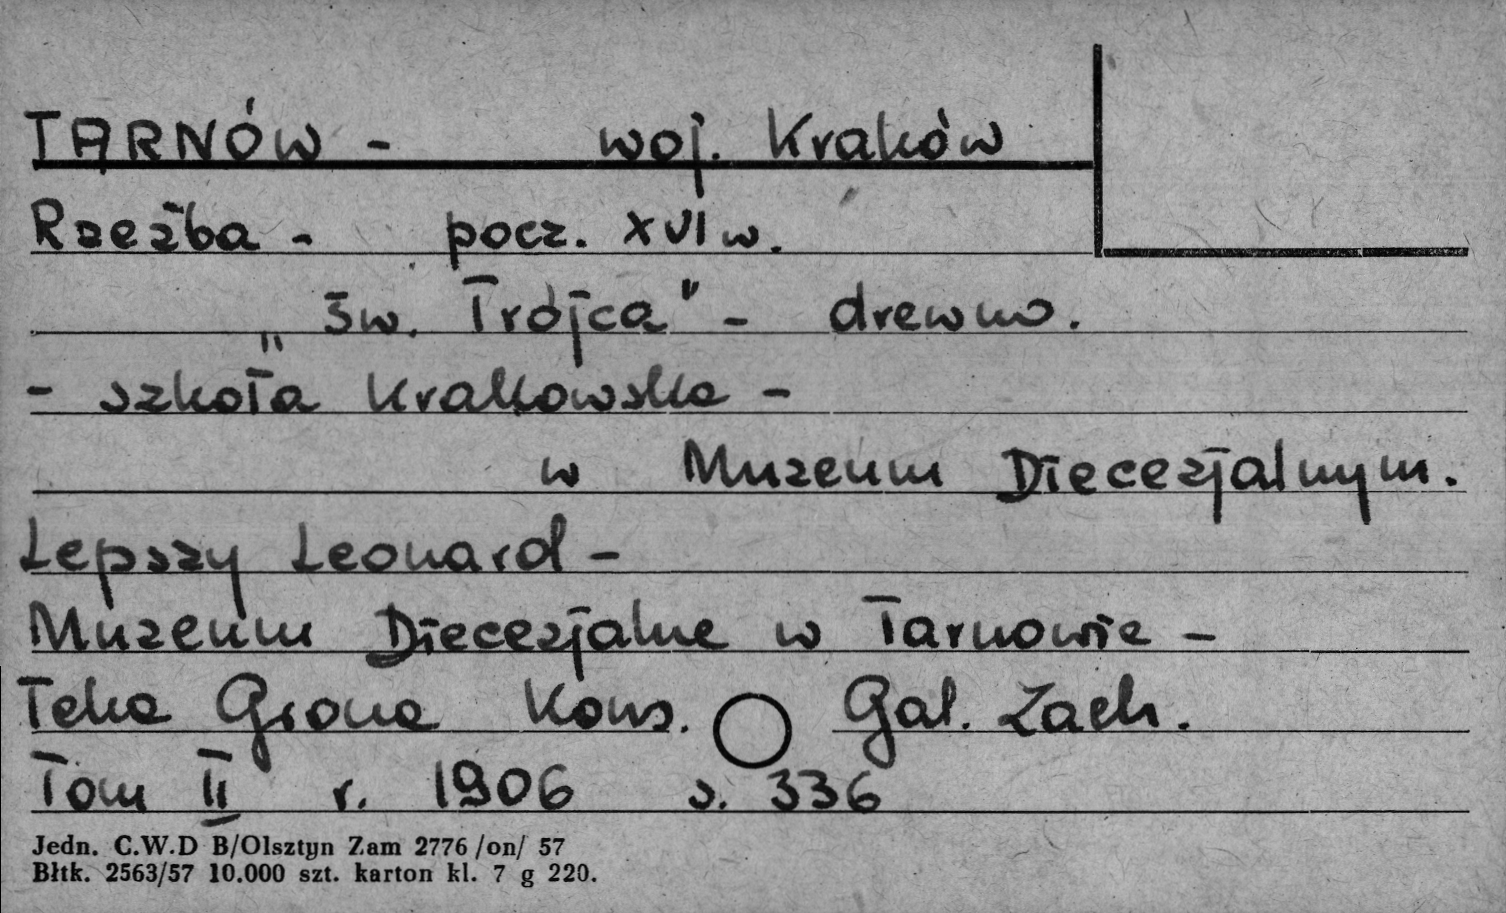 TARNÓW - woj. Kraków
Rzeźba - pocz. XVI w.
„Św. Trójca" - drewno.
- szkoła Krakowska -
w Muzeum Diecezjalnym.
Lepszy Leonard -
Muzeum Diecezjalne w Tarnowie -
Teka Grona Kons. Gal. Zach.
Tom II r. 1906 s. 336
Jedn. C.W.D B/Olsztyn Zam 2776 /on/ 57
Błtk. 2563/57 10.000 szt. karton kl. 7 g 220.